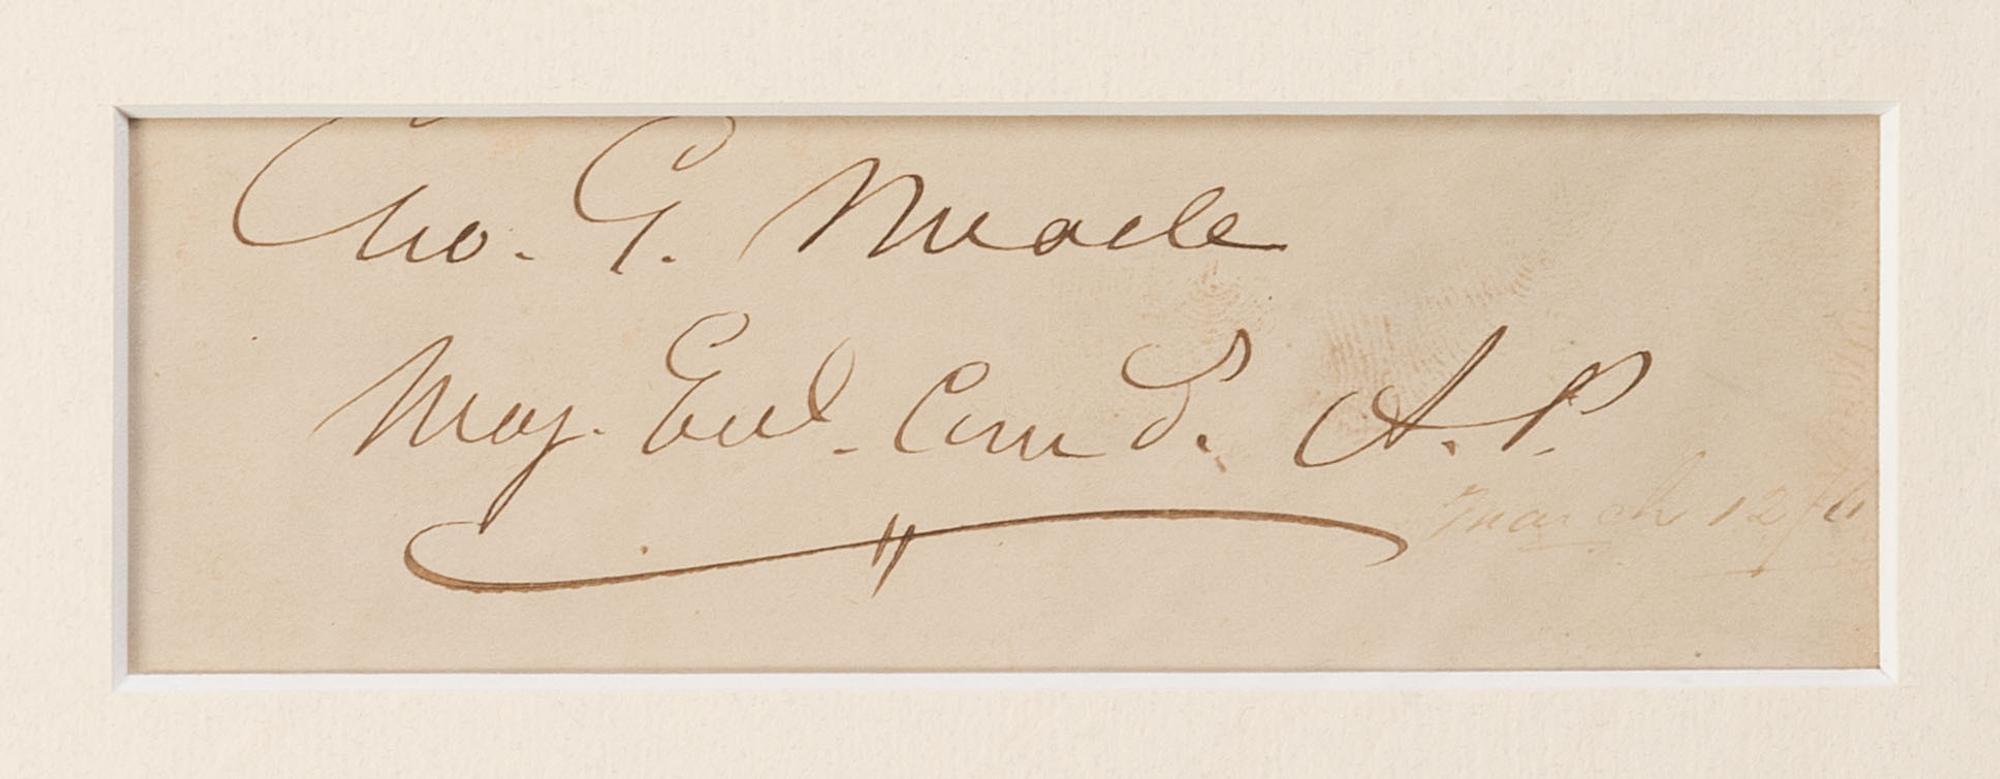 Geo. G. Meade
Maj. Genl. Comd. A. P.
March 12